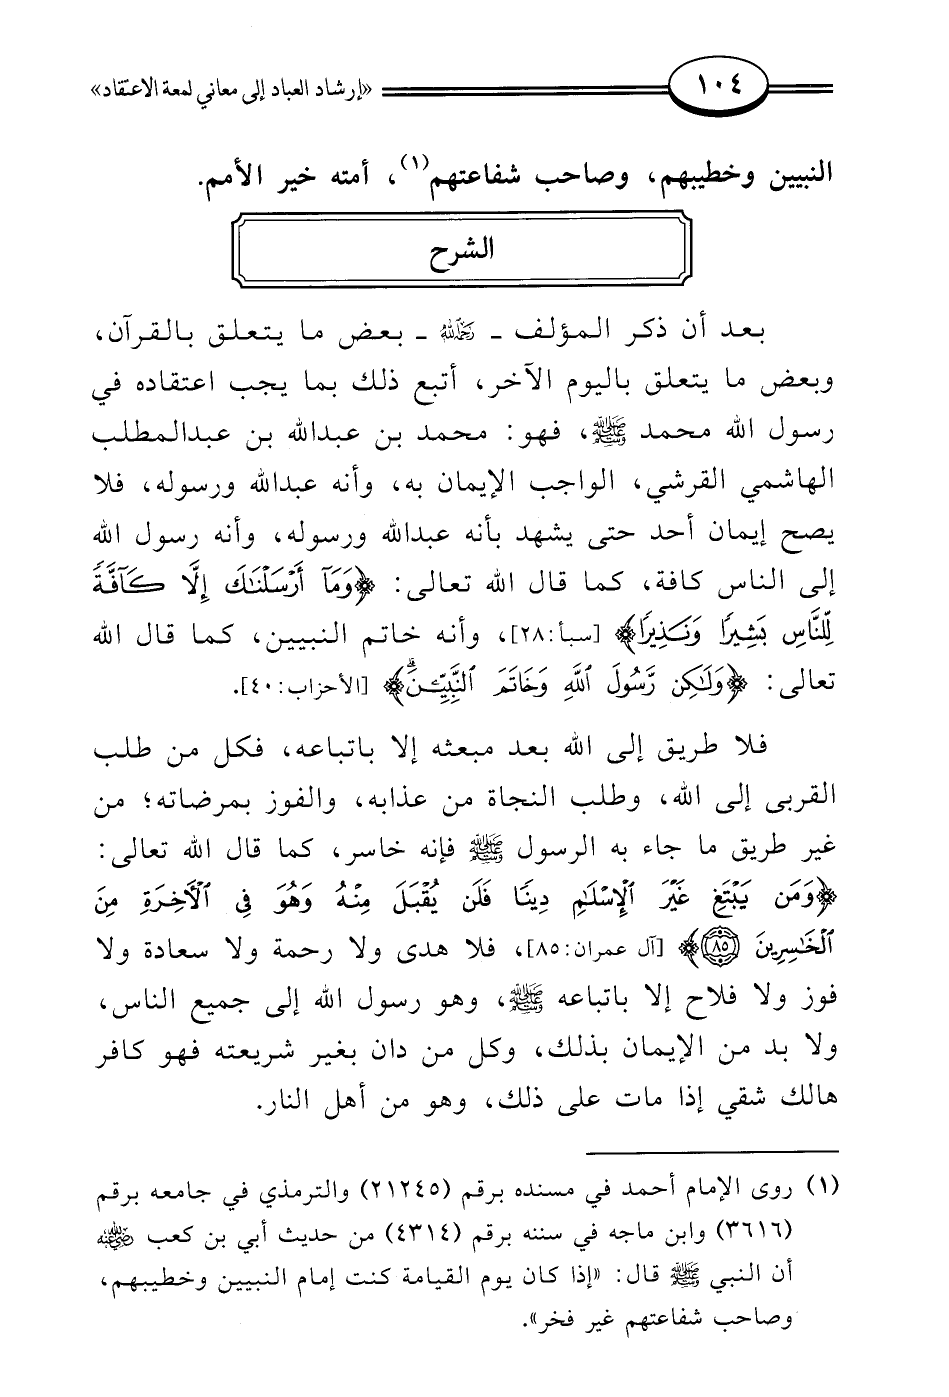 ١٠٤ «إرشاد العباد إلى معاني لمعة الاعتقاد»
النبيين وخطيبهم، وصاحب شفاعتهم(١)، أمته خير الأمم.
الشرح
بعد أن ذكر المؤلف ـ رحمه الله ـ بعض ما يتعلق بالقرآن،
وبعض ما يتعلق باليوم الآخر، أتبع ذلك بما يجب اعتقاده في
رسول الله محمد ﷺ، فهو: محمد بن عبدالله بن عبدالمطلب
الهاشمي القرشي، الواجب الإيمان به، وأنه عبدالله ورسوله، فلا
يصح إيمان أحد حتى يشهد بأنه عبدالله ورسوله، وأنه رسول الله
إلى الناس كافة، كما قال الله تعالى: ﴿وَمَآ أَرْسَلْنَٰكَ إِلَّا كَآفَّةً
لِّلنَّاسِ بَشِيرًا وَنَذِيرًا﴾ [سبأ:٢٨]، وأنه خاتم النبيين، كما قال الله
تعالى: ﴿وَلَٰكِن رَّسُولَ ٱللَّهِ وَخَاتَمَ ٱلنَّبِيِّـۧنَۗ﴾ [الأحزاب:٤٠].
فلا طريق إلى الله بعد مبعثه إلا باتباعه، فكل من طلب
القربى إلى الله، وطلب النجاة من عذابه، والفوز بمرضاته؛ من
غير طريق ما جاء به الرسول ﷺ فإنه خاسر، كما قال الله تعالى:
﴿وَمَن يَبْتَغِ غَيْرَ ٱلْإِسْلَٰمِ دِينًا فَلَن يُقْبَلَ مِنْهُ وَهُوَ فِى ٱلْأَخِرَةِ مِنَ
ٱلْخَٰسِرِينَ ٨٥﴾ [آل عمران:٨٥]، فلا هدى ولا رحمة ولا سعادة ولا
فوز ولا فلاح إلا باتباعه ﷺ، وهو رسول الله إلى جميع الناس،
ولا بد من الإيمان بذلك، وكل من دان بغير شريعته فهو كافر
هالك شقي إذا مات على ذلك، وهو من أهل النار.
(١) روى الإمام أحمد في مسنده برقم (٢١٢٤٥) والترمذي في جامعه برقم
(٣٦١٦) وابن ماجه في سننه برقم (٤٣١٤) من حديث أبي بن كعب رضي الله عنه
أن النبي ﷺ قال: «إذا كان يوم القيامة كنت إمام النبيين وخطيبهم،
وصاحب شفاعتهم غير فخر».